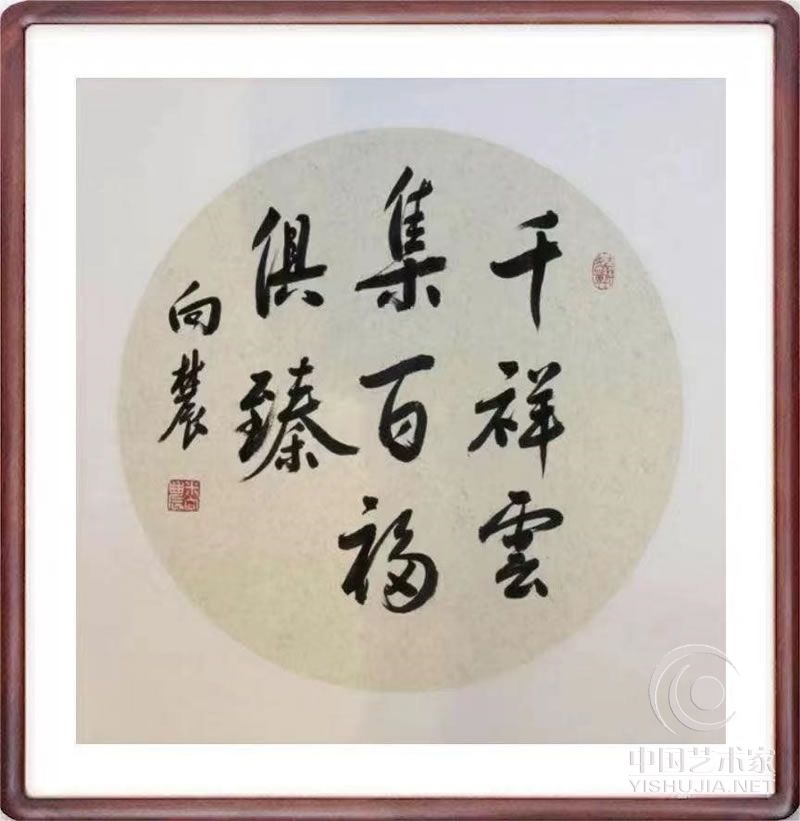 千祥雲
集百福
俱臻
向農
中国艺术家
YISHUJIA.NET